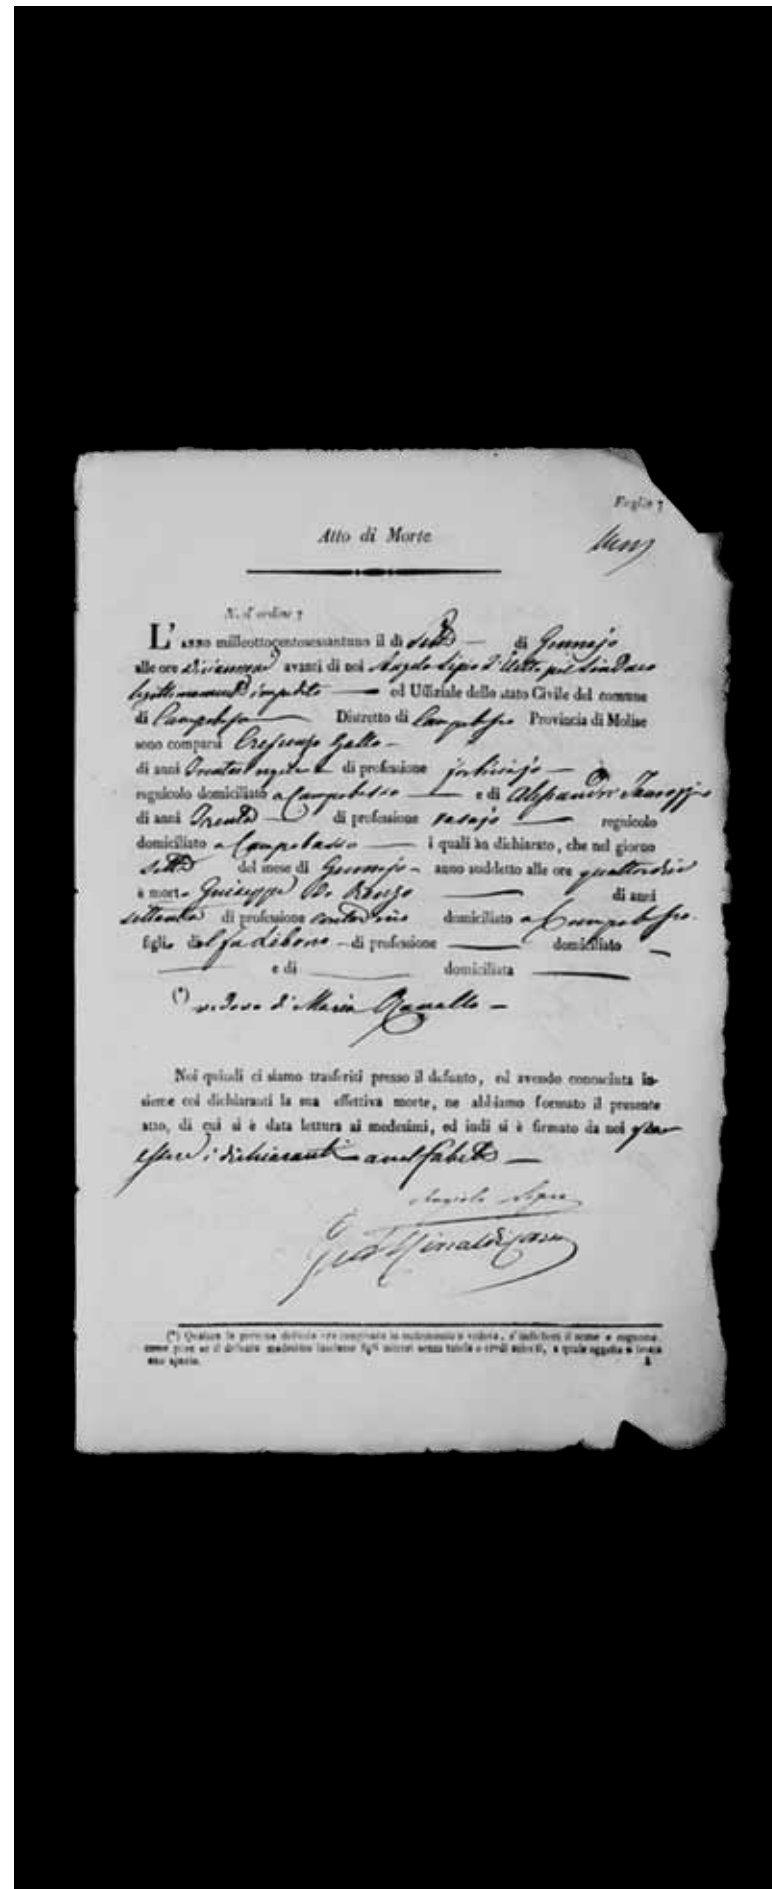 Foglio 7
Atto di Morte
N. d'ordine 7
L'anno milleottocentosessantuno il dì sette di Gennajo
alle ore diciannove avanti di noi Angelo Sipio Eletto pel Sindaco
legittimamente impedito ed Uffiziale dello stato Civile del comune
di Campobasso Distretto di Campobasso Provincia di Molise
sono comparsi Crescenzo Gallo
di anni di professione
regnicolo domiciliato a Campobasso e di Alessandro
di anni Trenta di professione vasajo regnicolo
domiciliato a Campobasso i quali àn dichiarato, che nel giorno
sette del mese di Gennajo anno suddetto alle ore quattordici
è morto Guiseppe Di Renzo di anni
settanta di professione contadino domiciliato a Campobasso
figlio del fu di professione domiciliato
e di domiciliata
(*) vedovo di Maria
Noi quindi ci siamo trasferiti presso il defunto, ed avendo conosciuta in-
sieme coi dichiaranti la sua effettiva morte, ne abbiamo formato il presente
atto, di cui si è data lettura ai medesimi, ed indi si è firmato da noi per
essere i dichiaranti analfabeti
Angelo Sipio
(*) Qualora la persona defunta era congiunta in matrimonio o vedova, s'indicherà il nome e cognome,
come pure se il defunto medesimo lasciasse figli minori senza tutela o eredi assenti, a quale oggetto si lascia
uno spazio.